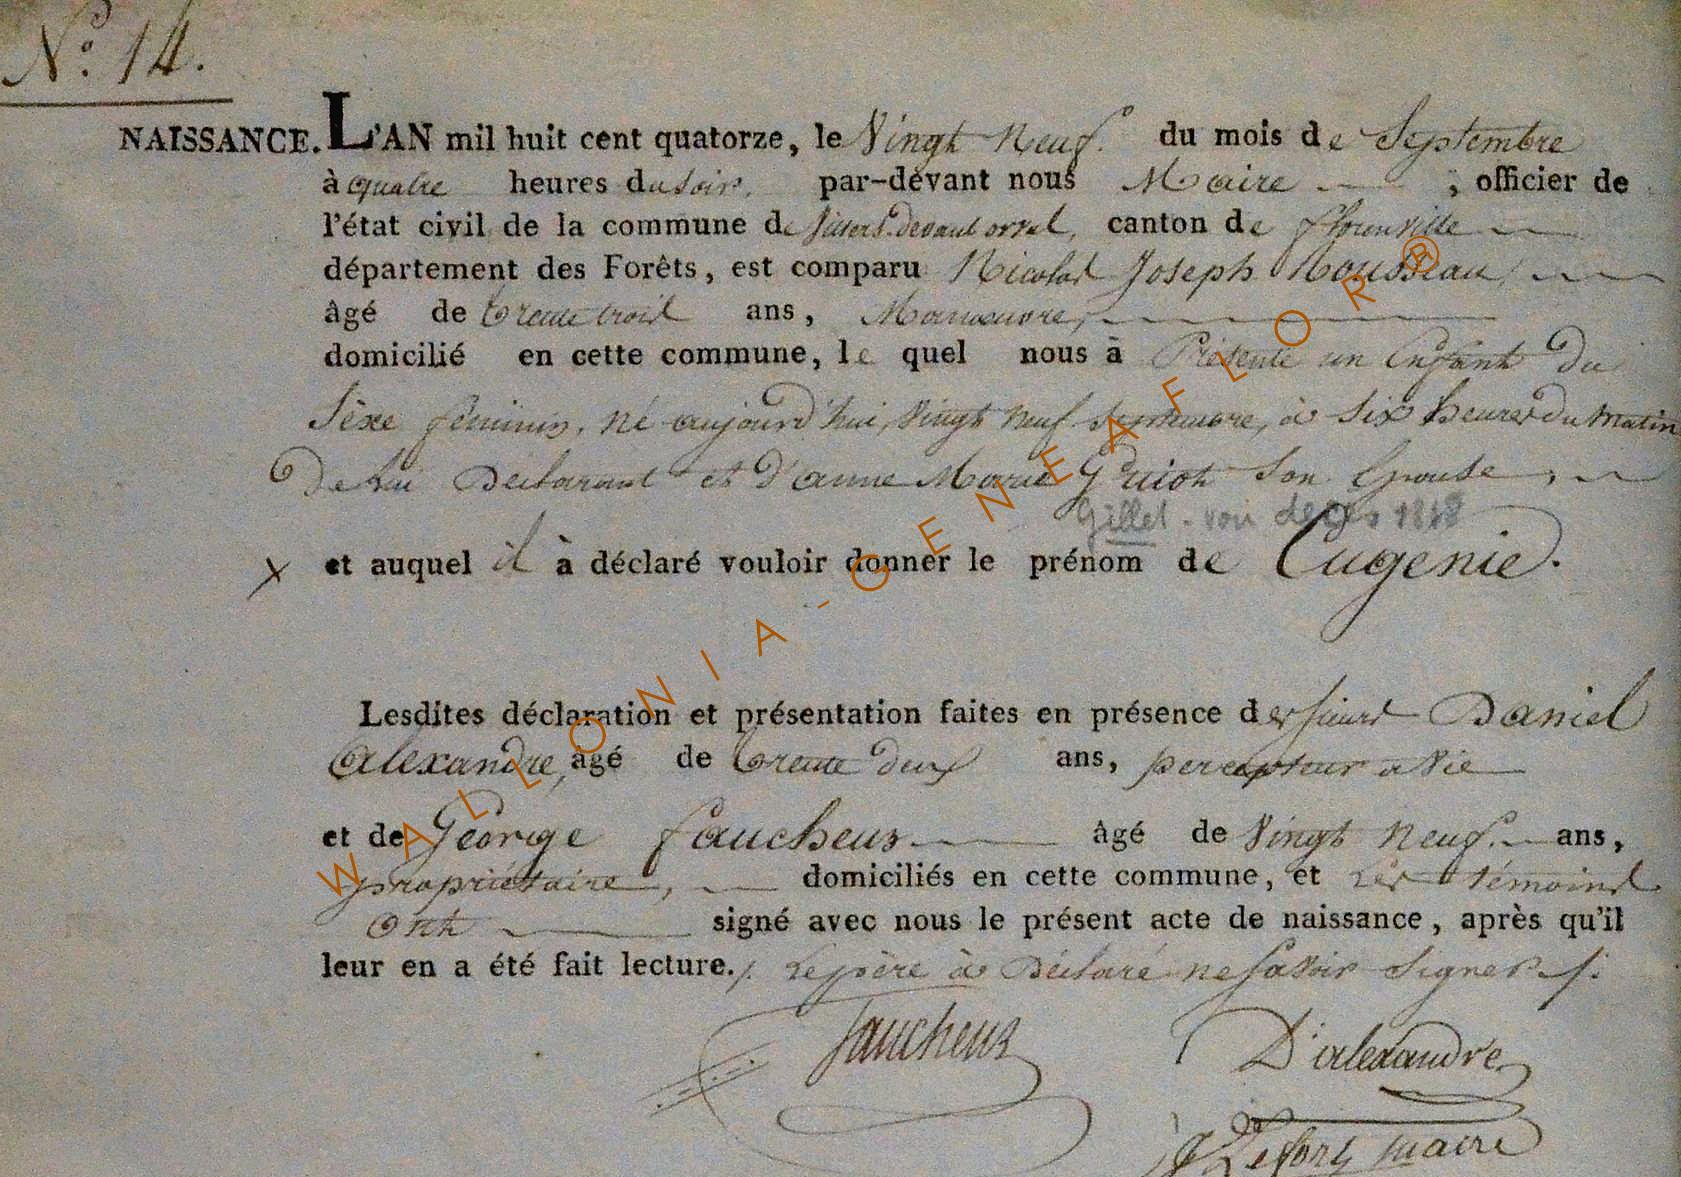 N.° 14.
NAISSANCE. L'AN mil huit cent quatorze, le Vingt Neuf. du mois de Septembre
à quatre heures du soir, par-devant nous Maire , officier de
l'état civil de la commune de Villers devant orval, canton de florenville
département des Forêts, est comparu Nicolas Joseph Rousseau,
âgé de trente trois ans, Manoeuvre,
domicilié en cette commune, le quel nous à Présenté un Enfant Du
Sèxe féminin, né aujourd'hui, Vingt neuf Septembre, à Six heures du Matin
De lui Déclarant et d'anne Marie Guiot Son Epouse,
Gillet - voir décès 1818
x et auquel il à déclaré vouloir donner le prénom de Eugenie.
Lesdites déclaration et présentation faites en présence des sieurs Daniel
Alexandre, âgé de trente deux ans, percepteur a Vie
et de George faucheux âgé de Vingt Neuf. ans,
propriétaire, domiciliés en cette commune, et Les témoins
Ont signé avec nous le présent acte de naissance, après qu'il
leur en a été fait lecture. /. Le père à Déclaré ne Savoir Signer /.
faucheux D'alexandre
Lefort maire
WALLONIA-GENEAFLOR®